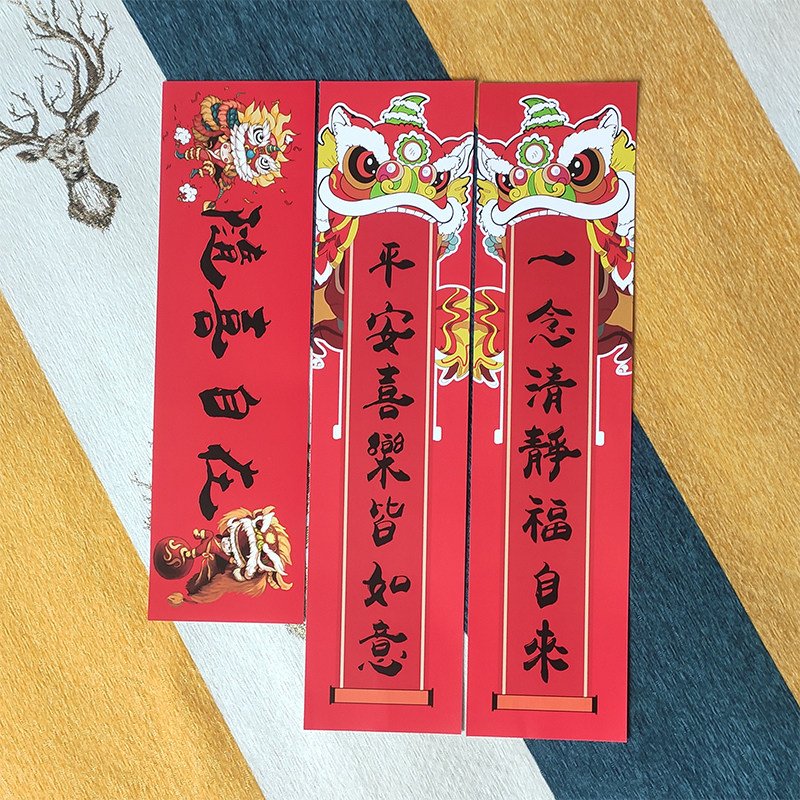 一念清靜福自來
平安喜樂皆如意
隨喜自在